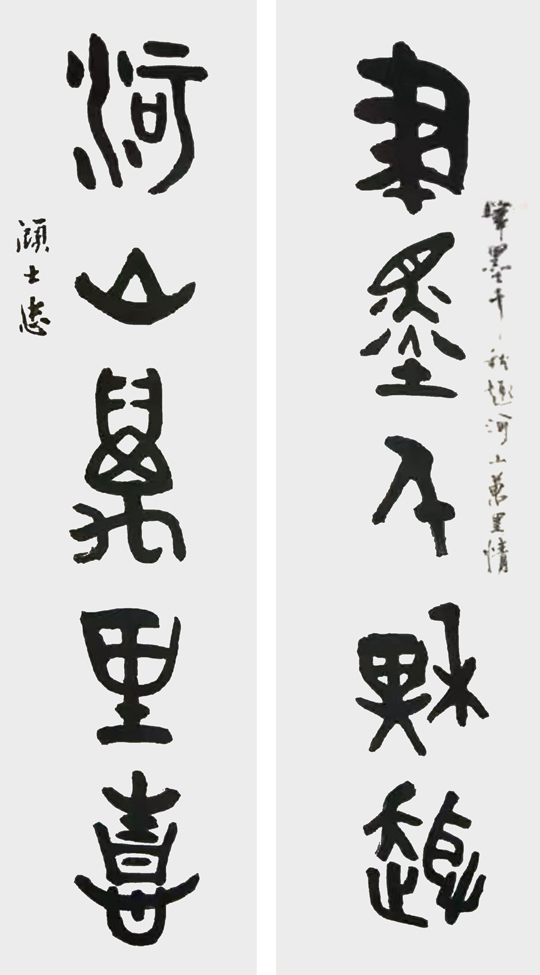 筆墨千秋趣
筆墨千秋趣河山萬里情
河山萬里喜
士